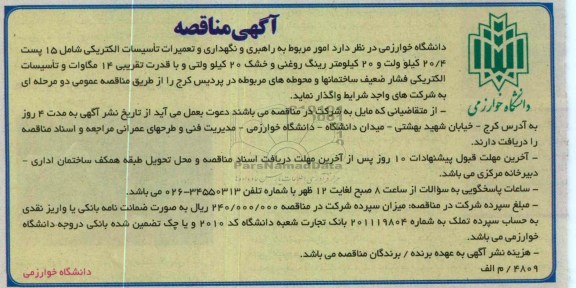 آگهی مناقصه
دانشگاه خوارزمی در نظر دارد امور مربوط به راهبری و نگهداری و تعمیرات تأسیسات الکتریکی شامل ۱۵ پست
۲۰/۴ کیلو ولت و ۲۰ کیلومتر رینگ روغنی و خشک ۲۰ کیلو ولتی و با قدرت تقریبی ۱۴ مگاوات و تأسیسات
الکتریکی فشار ضعیف ساختمانها و محوطه های مربوطه در پردیس کرج را از طریق مناقصه عمومی دو مرحله ای
به شرکت های واجد شرایط واگذار نماید.
- از متقاضیانی که مایل به شرکت در مناقصه می باشند دعوت بعمل می آید از تاریخ نشر آگهی به مدت ۴ روز
به آدرس کرج - خیابان شهید بهشتی - میدان دانشگاه - دانشگاه خوارزمی - مدیریت فنی و طرحهای عمرانی مراجعه و اسناد مناقصه
را دریافت دارند.
- آخرین مهلت قبول پیشنهادات ۱۰ روز پس از آخرین مهلت دریافت اسناد مناقصه و محل تحویل طبقه همکف ساختمان اداری -
دبیرخانه مرکزی می باشد.
- ساعات پاسخگویی به سوالات از ساعت ۸ صبح لغایت ۱۲ ظهر با شماره تلفن ۳۴۵۵۰۳۱۳-۰۲۶ می باشد.
- مبلغ سپرده شرکت در مناقصه: میزان سپرده شرکت در مناقصه ۲۴۰/۰۰۰/۰۰۰ ریال به صورت ضمانت نامه بانکی یا واریز نقدی
به حساب سپرده تملک به شماره ۲۰۱۱۱۹۸۰۴ بانک تجارت شعبه دانشگاه کد ۲۰۱۰ و یا چک تضمین شده بانکی دروجه دانشگاه
خوارزمی می باشد.
- هزینه نشر آگهی به عهده برنده / برندگان مناقصه می باشد.
۴۸۰۹ / م الف
دانشگاه خوارزمی
دانشگاه خوارزمی
ParsNamadData